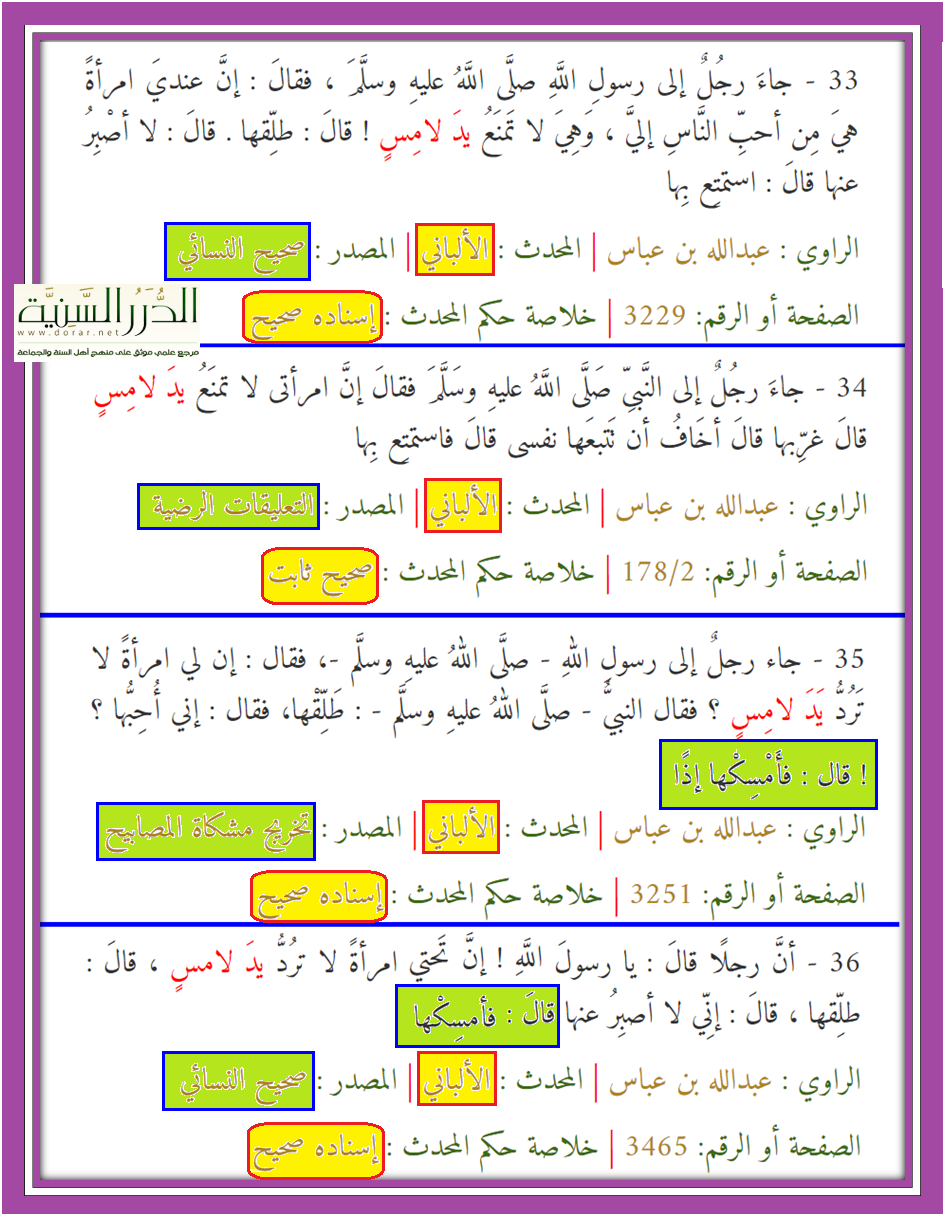 33 - جاءَ رجُلٌ إلى رسولِ اللَّهِ صلَّى اللَّهُ عليهِ وسلَّمَ ، فقالَ : إنَّ عنديَ امرأةً
هيَ مِن أحبِّ النَّاسِ إليَّ ، وَهِيَ لا تَمنَعُ يدَ لامِسٍ ! قالَ : طلِّقها . قالَ : لا أصْبِرُ
عنها قالَ : استمتِع بِها
الراوي : عبدالله بن عباس | المحدث : الألباني | المصدر : صحيح النسائي
الصفحة أو الرقم: 3229 | خلاصة حكم المحدث : إسناده صحيح
الدُّرَرُ السَّنِيَّة
www.dorar.net
مرجع علمي موثق على منهج أهل السنة والجماعة
34 - جاءَ رجُلٌ إلى النَّبيِّ صَلَّى اللَّهُ عليهِ وسَلَّمَ فقالَ إنَّ امرأتى لا تمنَعُ يدَ لامِسٍ
قالَ غرِّبها قالَ أخَافُ أن تَتبعَها نفسى قالَ فاستمتِع بِها
الراوي : عبدالله بن عباس | المحدث : الألباني | المصدر : التعليقات الرضية
الصفحة أو الرقم: 178/2 | خلاصة حكم المحدث : صحيح ثابت
35 - جاء رجلٌ إلى رسولِ اللهِ - صلَّى اللهُ عليهِ وسلَّم -، فقال : إن لي امرأةً لا
تَرُدُّ يَدَ لامِسٍ ؟ فقال النبيُّ - صلَّى اللهُ عليهِ وسلَّم - : طَلِّقْها، فقال : إني أُحِبُّها ؟
! قال : فأَمْسِكْها إذًا
الراوي : عبدالله بن عباس | المحدث : الألباني | المصدر : تخريج مشكاة المصابيح
الصفحة أو الرقم: 3251 | خلاصة حكم المحدث : إسناده صحيح
36 - أنَّ رجلًا قالَ : يا رسولَ اللَّهِ ! إنَّ تَحتي امرأةً لا تردُّ يدَ لامسٍ ، قالَ :
طلِّقها ، قالَ : إنِّي لا أصبِرُ عنها قالَ : فأمسِكْها
الراوي : عبدالله بن عباس | المحدث : الألباني | المصدر : صحيح النسائي
الصفحة أو الرقم: 3465 | خلاصة حكم المحدث : إسناده صحيح